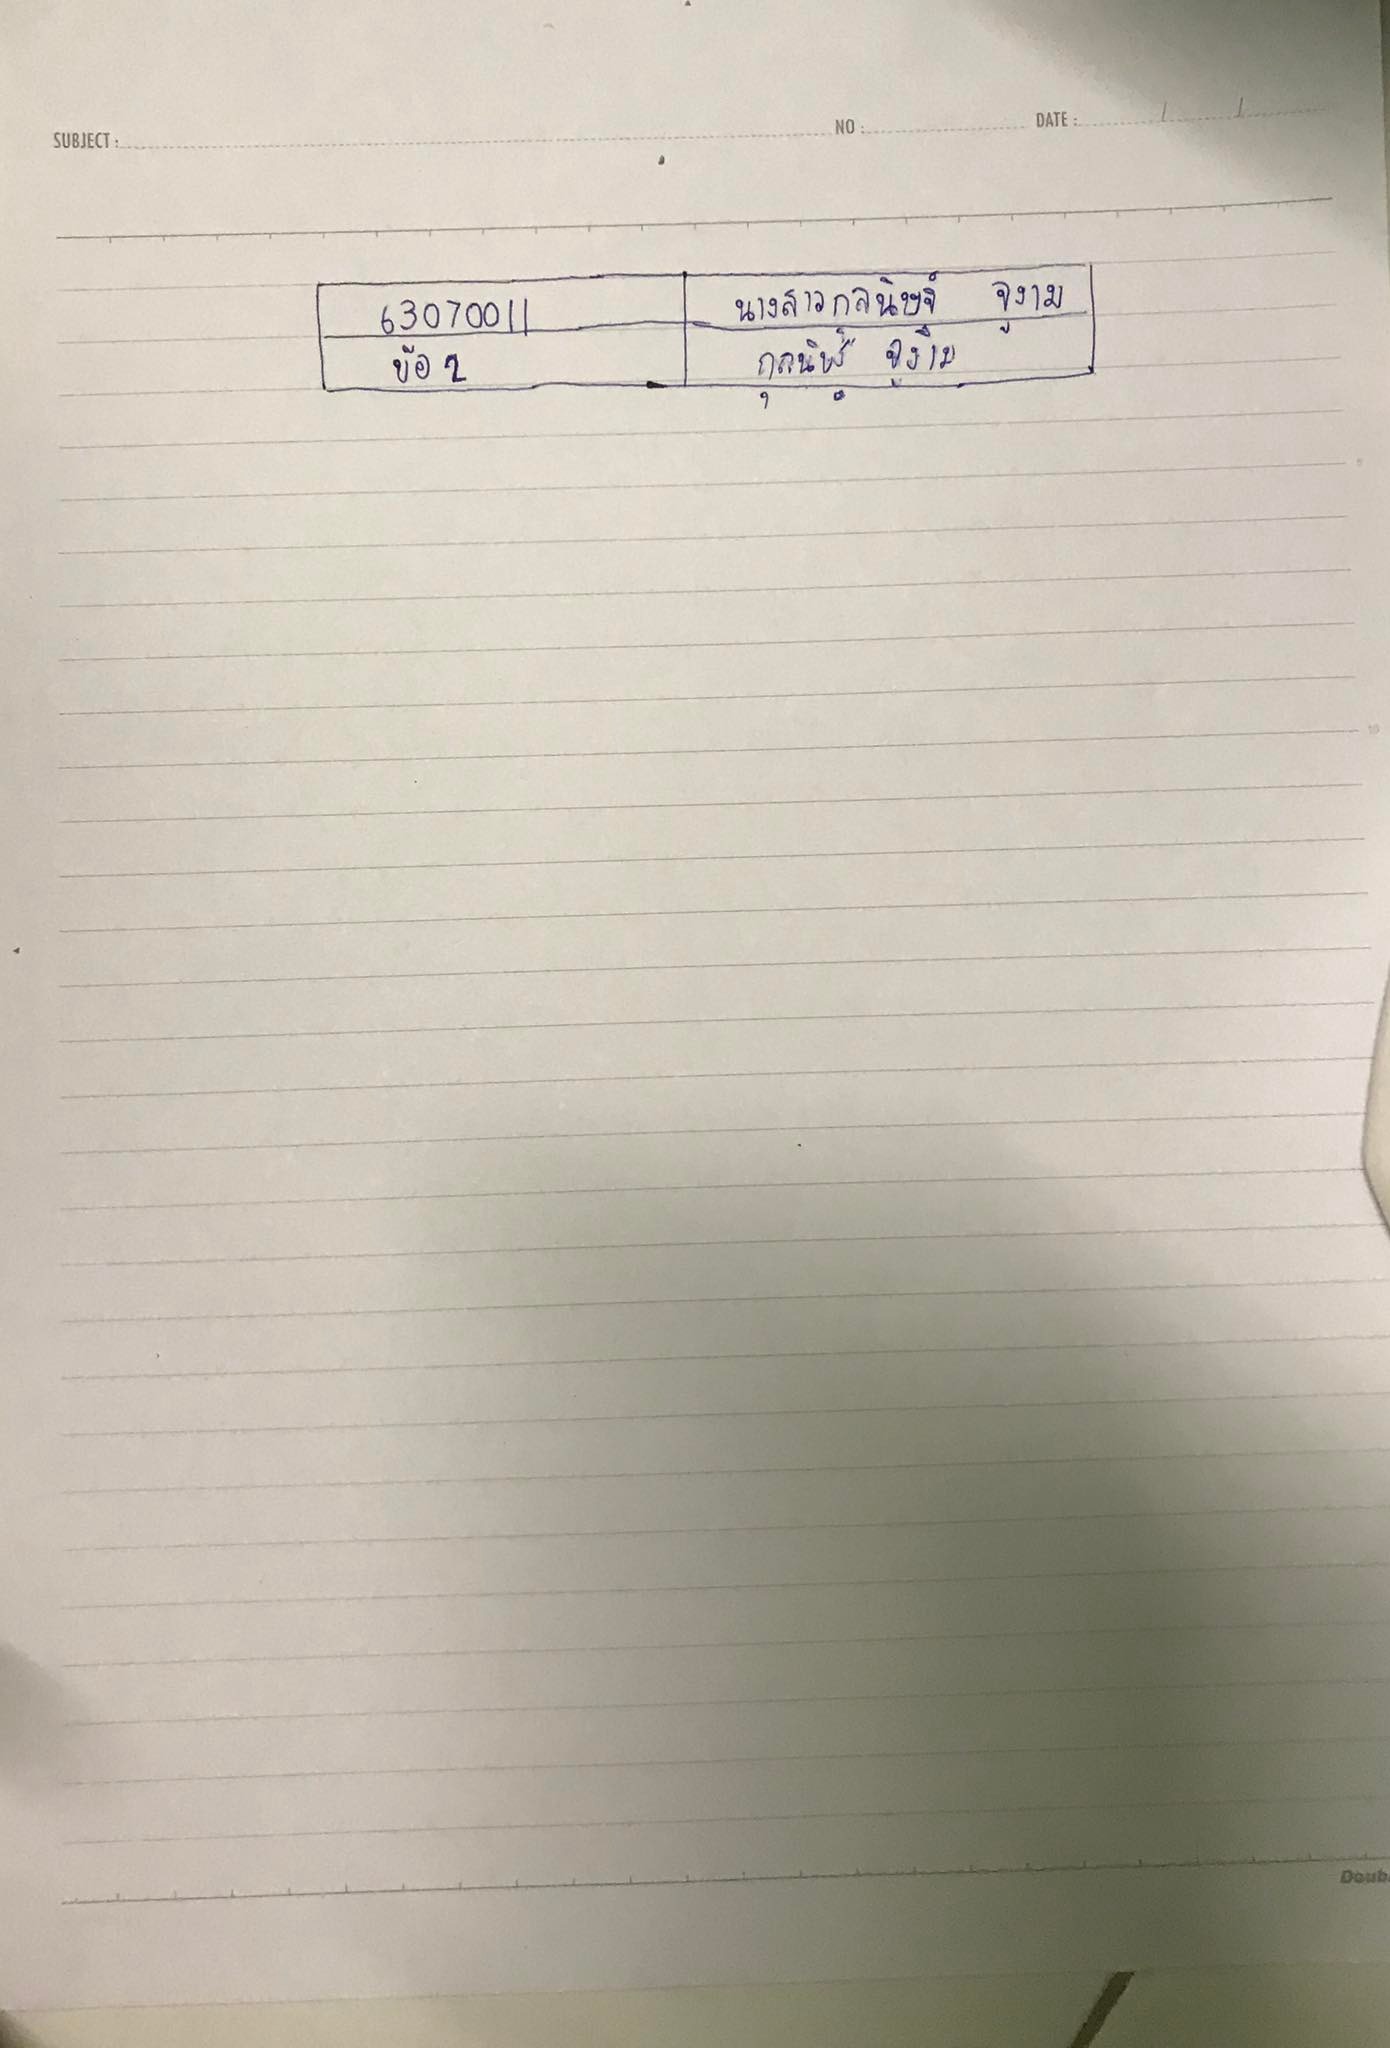 SUBJECT : NO : DATE : / /
63070011 นางสาวกุลนิษฐ์ จูงาม
ข้อ 2 กุลนิษฐ์ จูงาม
Doub